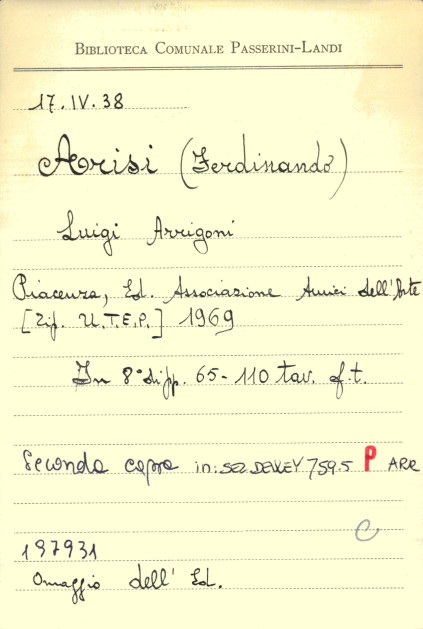 BIBLIOTECA COMUNALE PASSERINI-LANDI
17.IV.38
Arisi (Ferdinando)
Luigi Arrigoni
Piacenza, Ed. Associazione Amici dell'Arte
[Tip. U.T.E.P.] 1969
In 8° di pp. 65-110 tav. f.t.
Seconda copia in: SEZ. DEWEY 759.5 P ARR
C
197931
Omaggio dell' Ed.